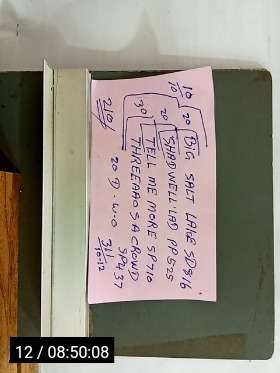 10
10
20 BIG SALT LAKE SD816
20 SHADWELL LAD PP525
30 TELL ME MORE SP710
THREEAAO S A CROWD
SP437
20 D.W.O
311
10.12
210
12 / 08:50:08